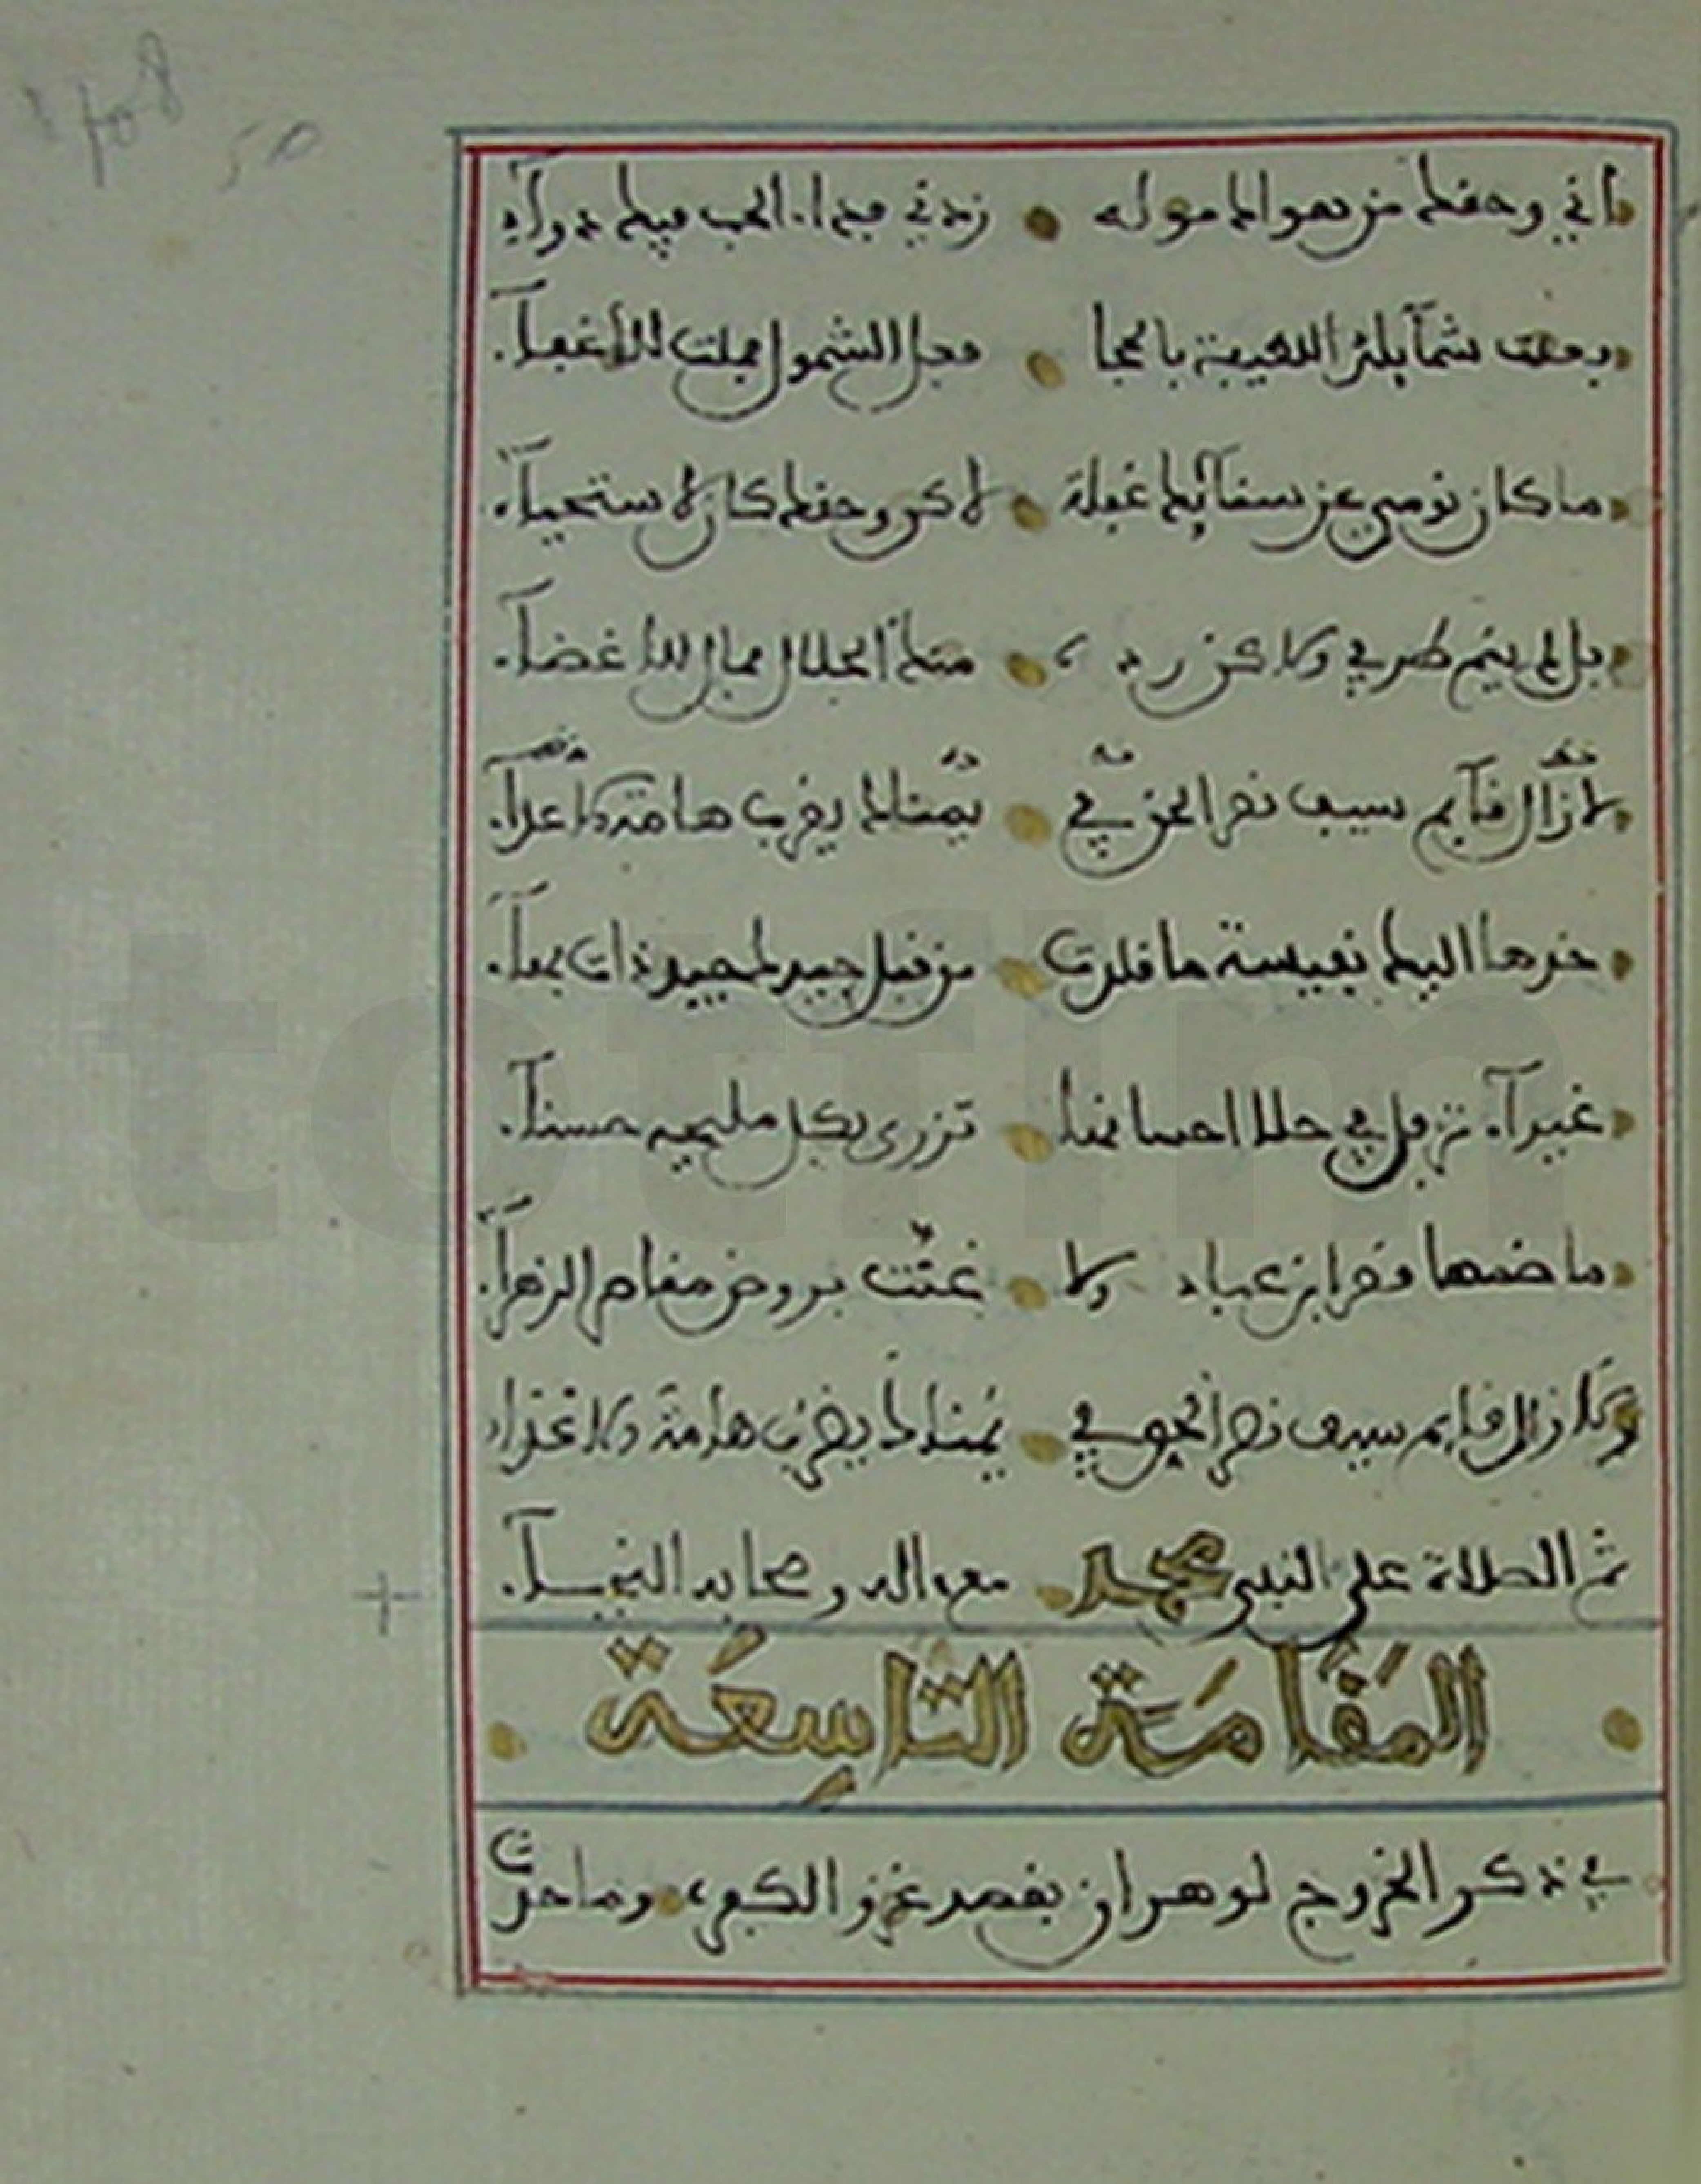 اني وحقك من هواك موله زدني فداء الحب فيك دواء
بعلت شمآيلك اللطيفة بالحجا فعل الشمول فملت للاغفاء
ما كان نومي عن سنآئك غفلة لاكن وحقك كان لاستحياء
بل لم ينم طرفي ولاكن رده منك الجلال فمال للاغضاء
لا زال قآيم سيف نصر الحق في يمناك يضرب هامة الاعداء
خذها اليك نفيسة ما قلدت من قبل جيد لمجيد ذات بهاء
غيرآء ترفل في حلا احسانها تزري بكل مليحة حسناء
ما ضمها قصر ابن عباد ولا غنت بروض مقام الزهراء
ولا زال قايم سيف نصر الحق في يمناك يضرب هامة الاعداء
ثم الصلاة على النبي محمد مع واله وصحابه النجباء
المقامة التاسعة
في ذكر الخروج لوهران بقصد غزو الكفره وما حل
to
m
50